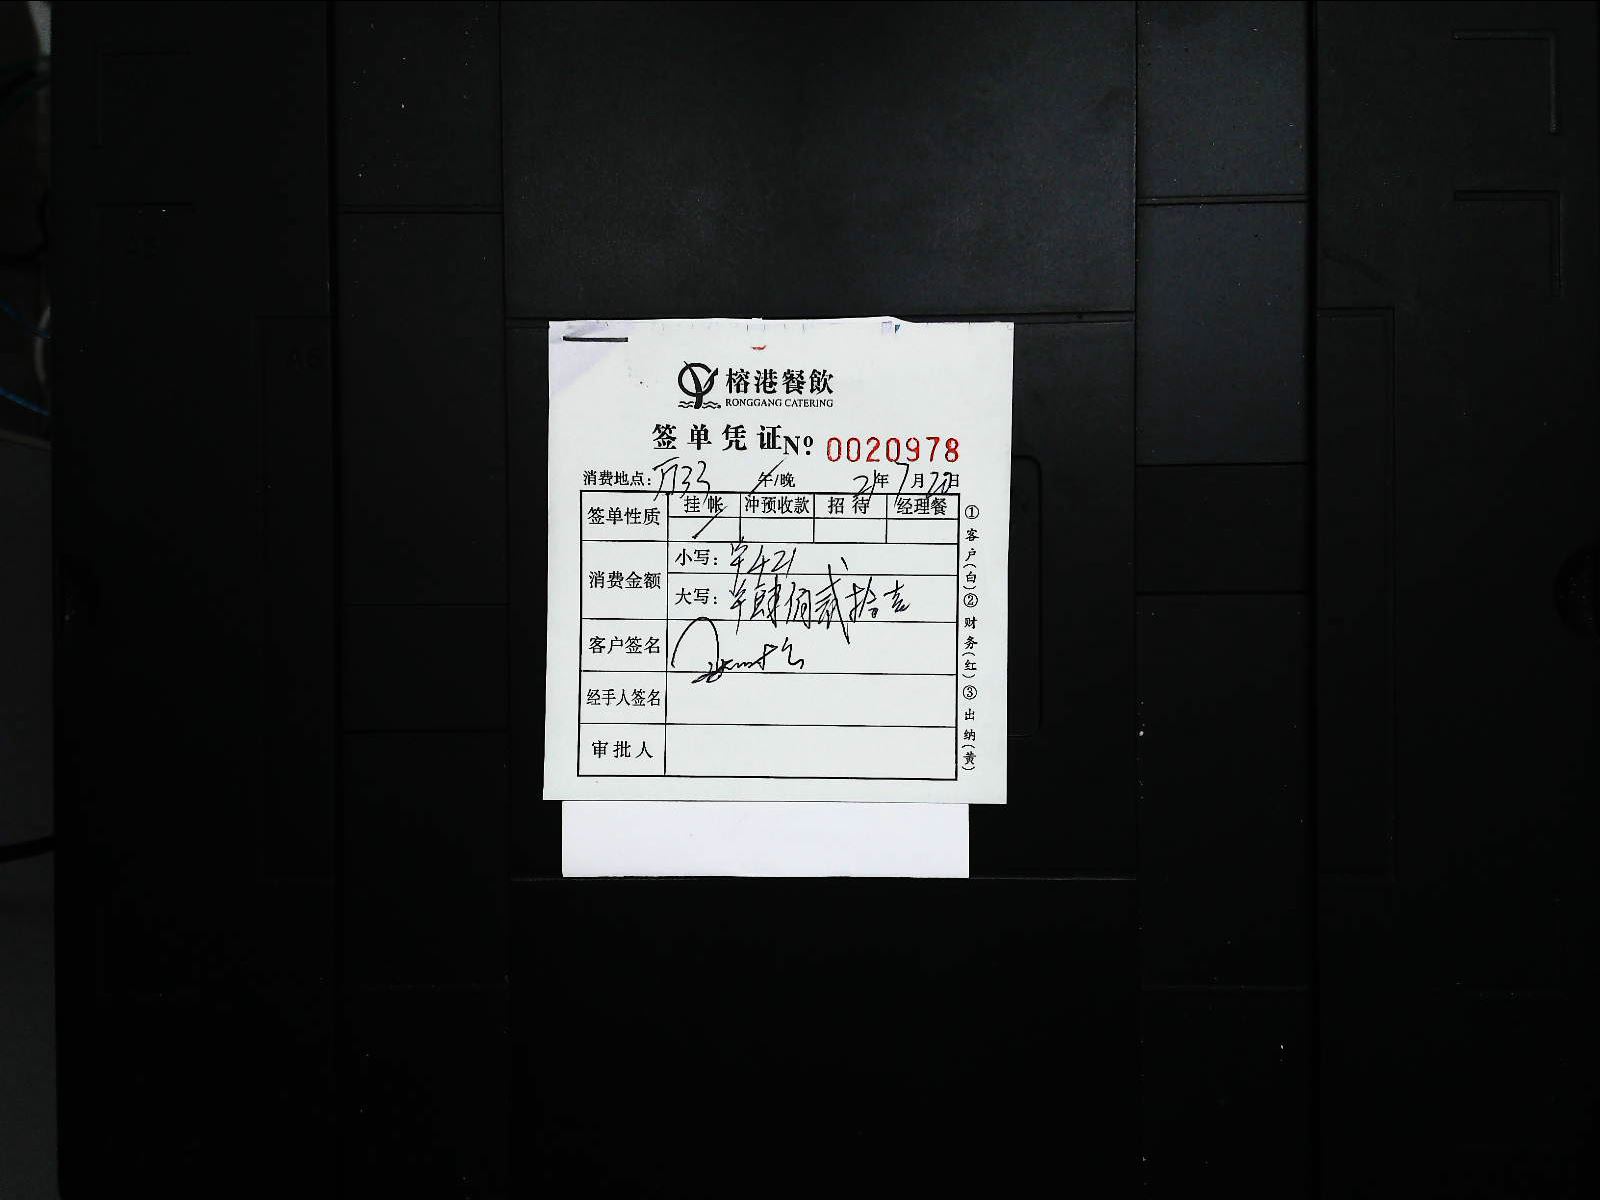 榕港餐飲
RONGGANG CATERING
签单凭证 Nº 0020978
消费地点: 133 午/晚 21年7月20日
签单性质 挂帐 冲预收款 招待 经理餐
消费金额 小写: ¥421
大写: ¥肆佰贰拾壹
客户签名
经手人签名
审批人
①客户(白)②财务(红)③出纳(黄)
A5
A6